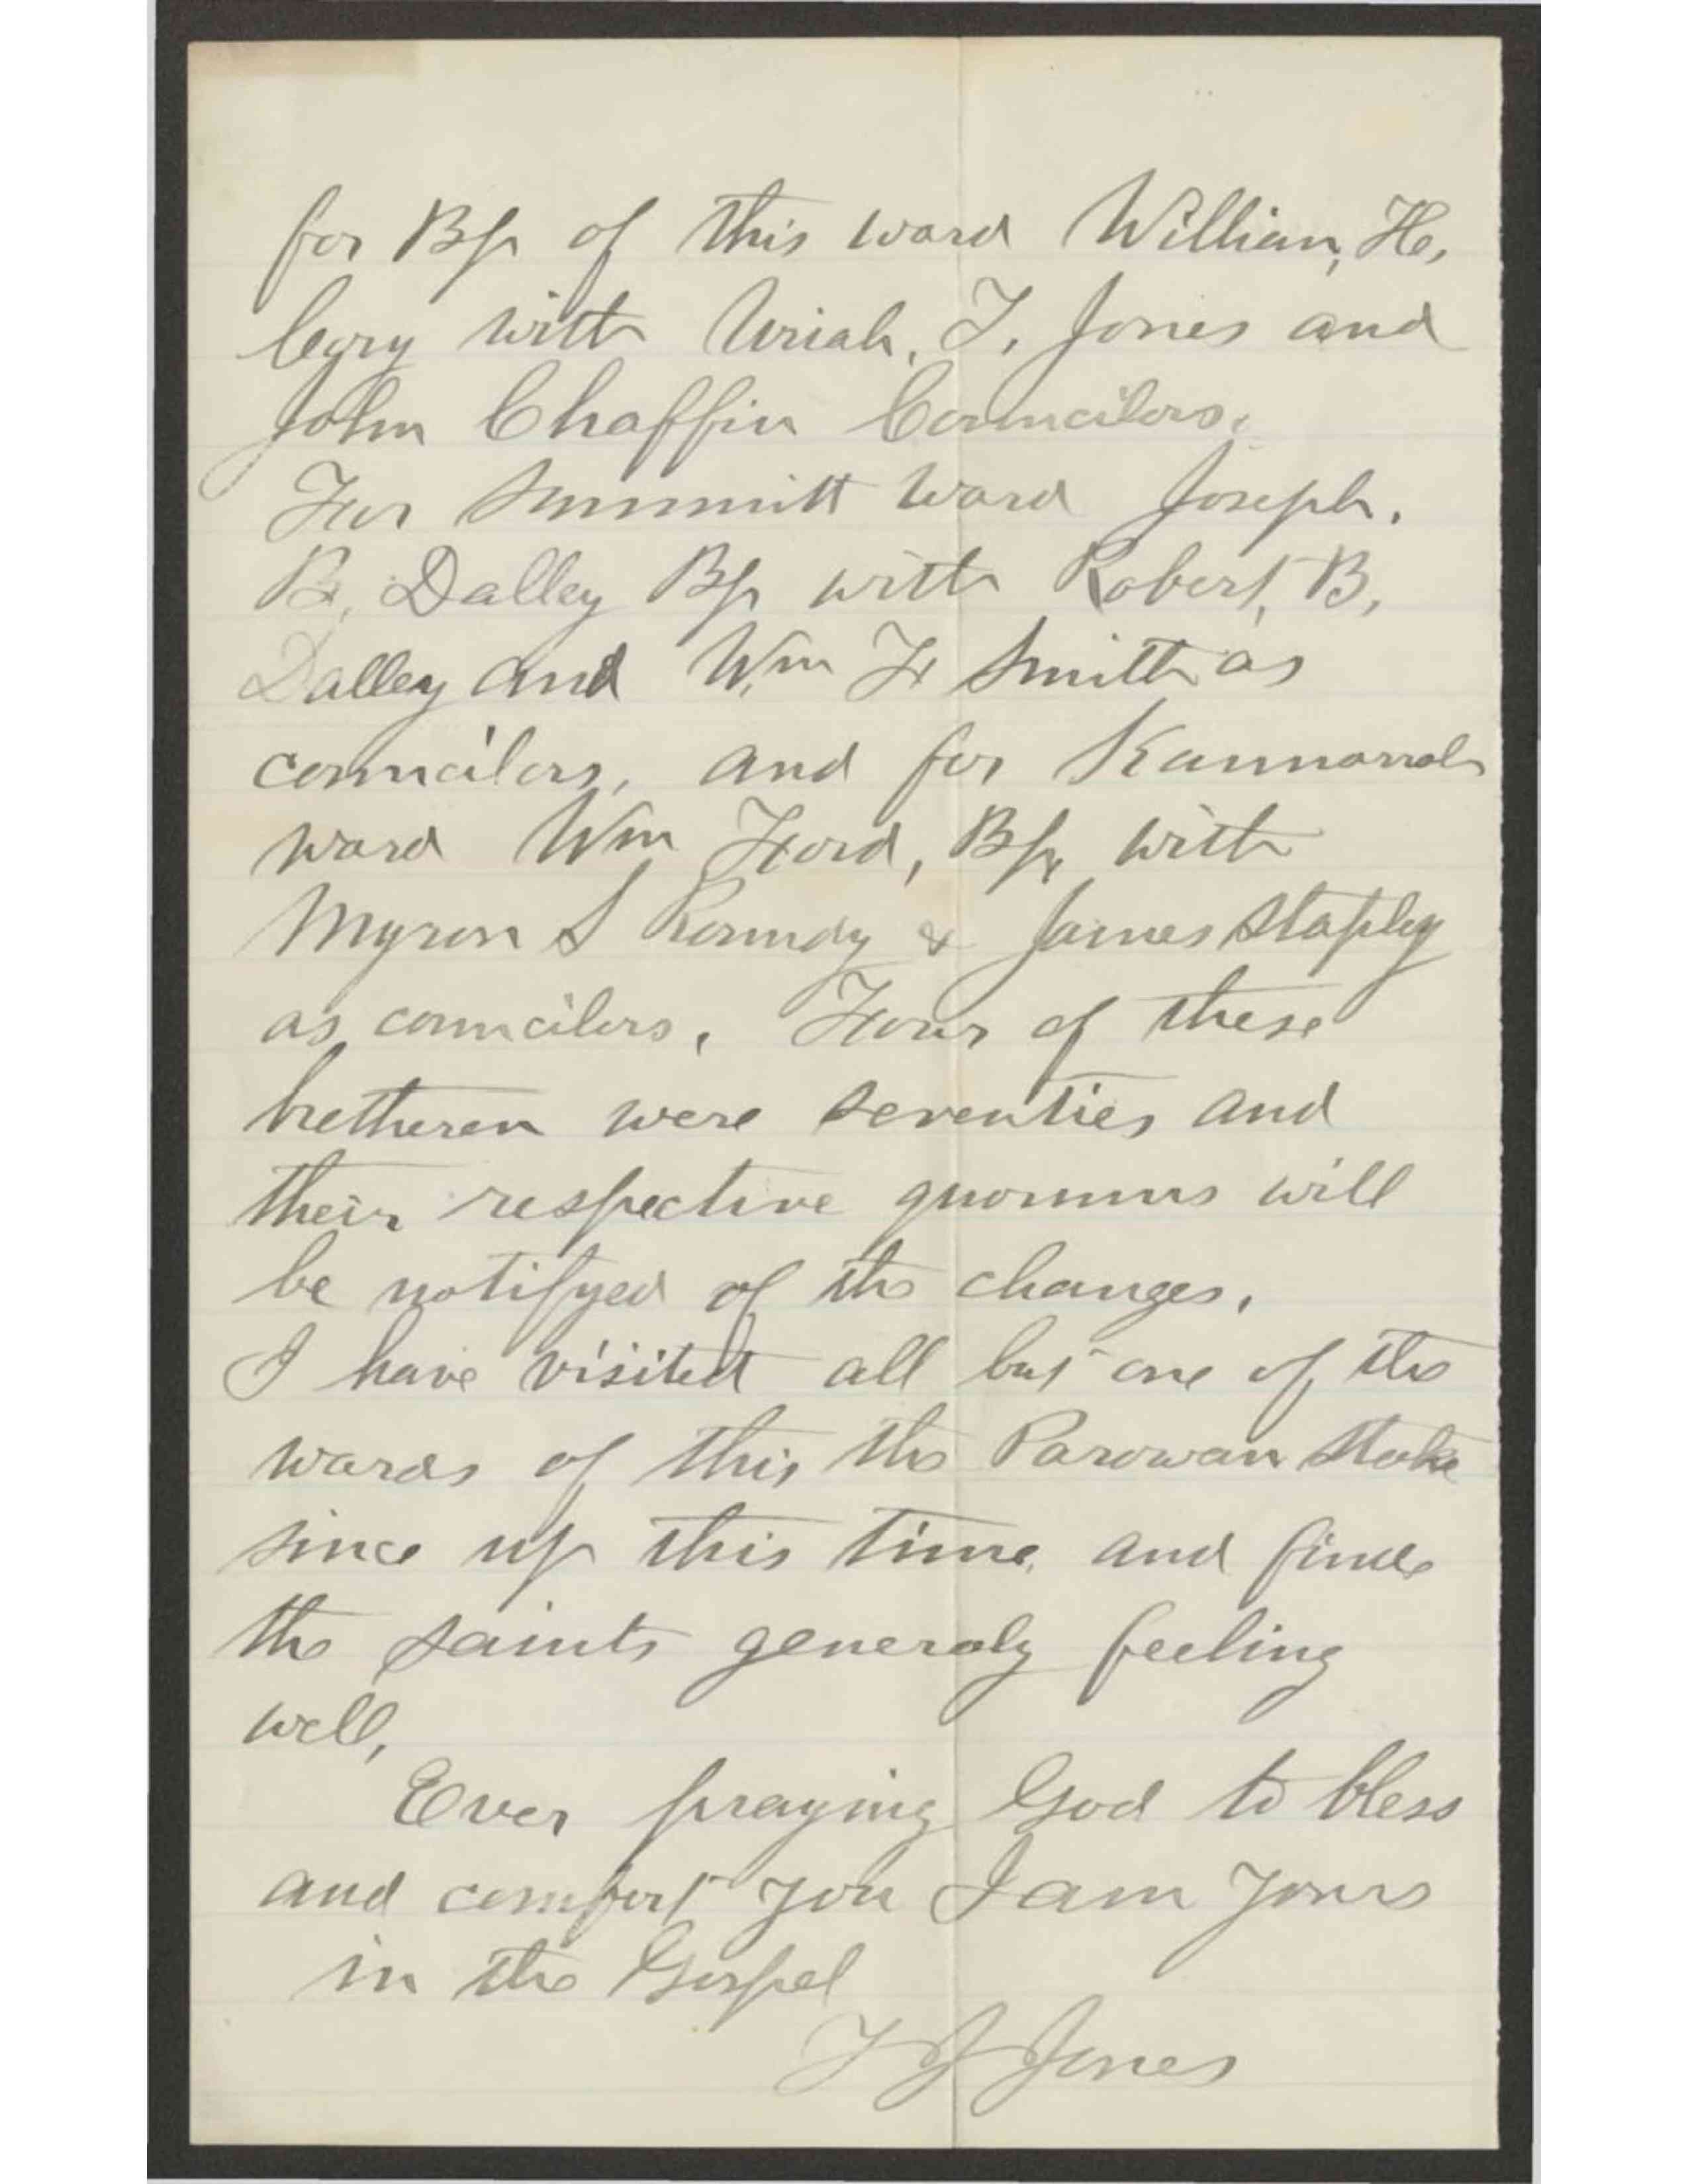 for Bp of this ward William, H,
Cory with Uriah, T, Jones and
John Chaffin Councilors.
For Summitt Ward Joseph.
B, Dalley Bp with Robert, B,
Dalley and Wm F Smith as
councilors, and for Kannarrah
ward Wm Ford, Bp, with
Myron S Roundy & James Stapley
as councilors, Four of these
bretheren were seventies and
their respective quorums will
be notifyed of the changes.
I have visited all but one of the
wards of this the Parowan Stake
since up this time, and finde
the saints generaly feeling
well,
Ever praying God to bless
and comfort you I am yours
in the Gospel
T J Jones